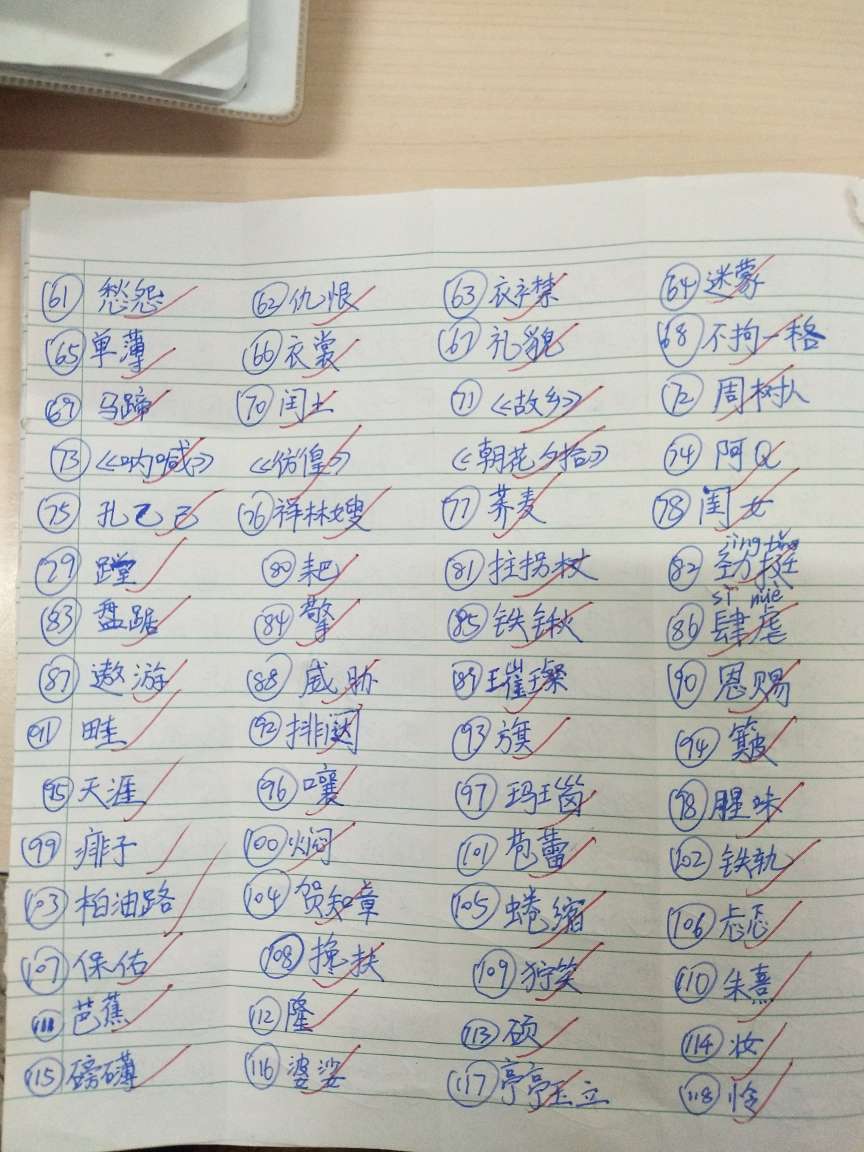 61 愁怨 62 仇恨 63 衣襟 64 迷蒙
65 单薄 66 衣裳 67 礼貌 68 不拘一格
69 马蹄 70 闰土 71 《故乡》 72 周树人
73 《呐喊》 《彷徨》 《朝花夕拾》 74 阿Q
75 孔乙己 76 祥林嫂 77 荞麦 78 闺女
jìng tǐng
79 蹚 80 耙 81 拄拐杖 82 劲挺
sì nüè
83 盘踞 84 擎 85 铁锹 86 肆虐
87 遨游 88 威胁 89 璀璨 90 恩赐
91 畦 92 排闼 93 旗 94 簸
95 天涯 96 嚷 97 玛瑙 98 腥味
99 痱子 100 焖 101 苞蕾 102 铁轨
103 柏油路 104 贺知章 105 蜷缩 106 忐忑
107 保佑 108 搀扶 109 狞笑 110 朱熹
111 芭蕉 112 隆 113 硕 114 妆
115 磅礴 116 婆娑 117 亭亭玉立 118 怜